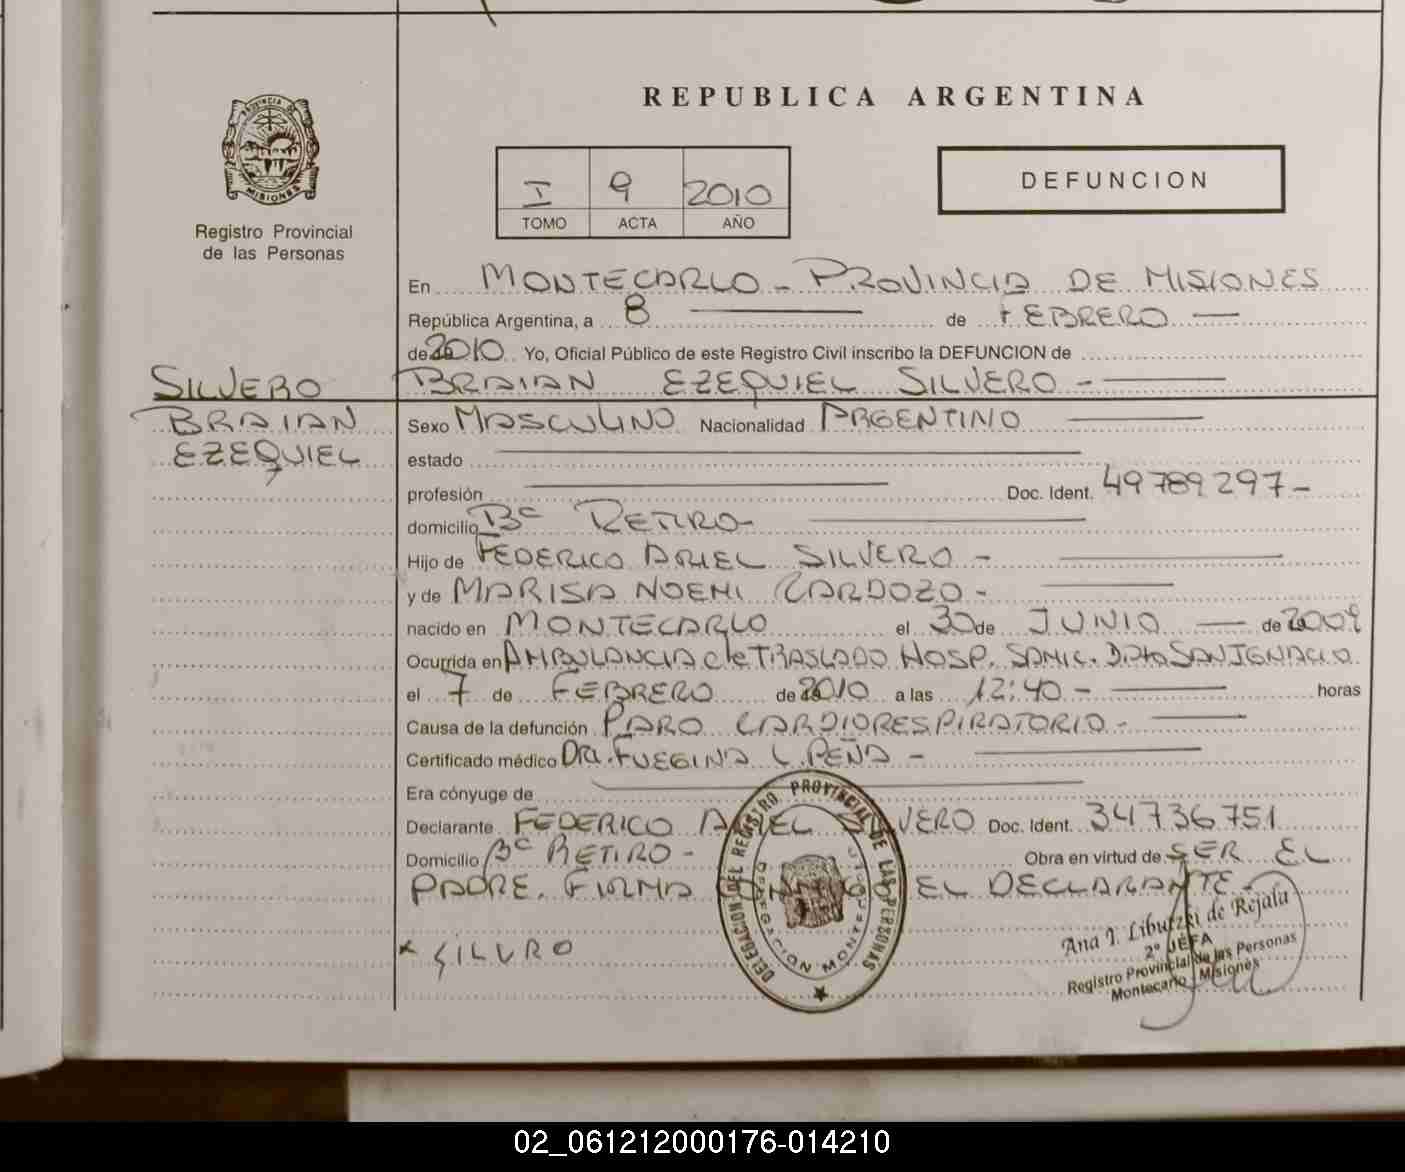 REPUBLICA ARGENTINA
PROVINCIA DE MISIONES
Registro Provincial
de las Personas
I 9 2010
TOMO ACTA AÑO
DEFUNCION
En MONTECARLO - PROVINCIA DE MISIONES
República Argentina, a 8 de FEBRERO
de 2010 Yo, Oficial Público de este Registro Civil inscribo la DEFUNCION de
SILVERO
BRAIAN
EZEQUIEL
BRAIAN EZEQUIEL SILVERO -
Sexo MASCULINO Nacionalidad ARGENTINO
estado
profesión Doc. Ident. 49789297-
domicilio Bº RETIRO-
Hijo de FEDERICO ARIEL SILVERO -
y de MARISA NOEMI CARDOZO -
nacido en MONTECARLO el 30 de JUNIO de 2009
Ocurrida en AMBULANCIA de TRASLADO HOSP. SAMIC. Dpto SAN IGNACIO
el 7 de FEBRERO de 2010 a las 12:40 - horas
Causa de la defunción PARO CARDIORESPIRATORIO -
Certificado médico Dra. FUEGINA L. PEÑA -
Era cónyuge de
Declarante FEDERICO ARIEL SILVERO Doc. Ident. 34736751
Domicilio Bº RETIRO - Obra en virtud de SER EL
PADRE. FIRMA EL DECLARANTE -
SILVRO
DELEGACION DEL REGISTRO PROVINCIAL DE LAS PERSONAS
Ana I. Libutzki de Rejala
2º JEFA
Registro Provincial de las Personas
Montecarlo Misiones
02_061212000176-014210